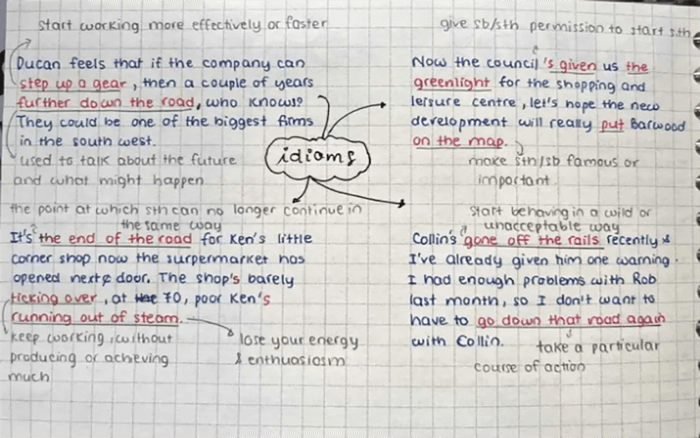 start working more effectively or faster
Ducan feels that if the company can
step up a gear, then a couple of years
further down the road, who knows?
They could be one of the biggest firms
in the south west.
used to talk about the future
and what might happen
give sb/sth permission to start sth
Now the council's given us the
greenlight for the shopping and
leisure centre, let's hope the new
development will really put Barwood
on the map.
make sth/sb famous or
important
idioms
the point at which sth can no longer continue in
the same way
It's the end of the road for Ken's little
corner shop now the surpermarket has
opened next door. The shop's barely
ticking over, at 70, poor Ken's
running out of steam.
keep working, without
producing or acheving
much
lose your energy
& enthuasiosm
start behaving in a wild or
unacceptable way
Collin's gone off the rails recently &
I've already given him one warning.
I had enough problems with Rob
last month, so I don't want to
have to go down that road again
with Collin.
take a particular
course of action